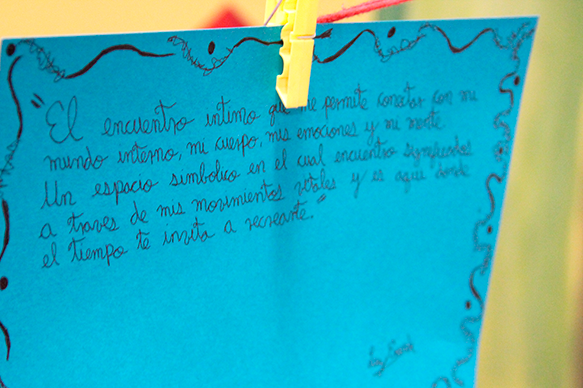 "El encuentro intimo que me permite conectar con mi
mundo interno, mi cuerpo, mis emociones y mi mente.
Un espacio simbolico en el cual encuentro significados
a traves de mis movimientos vitales y es aqui donde
el tiempo te invita a recrearte."